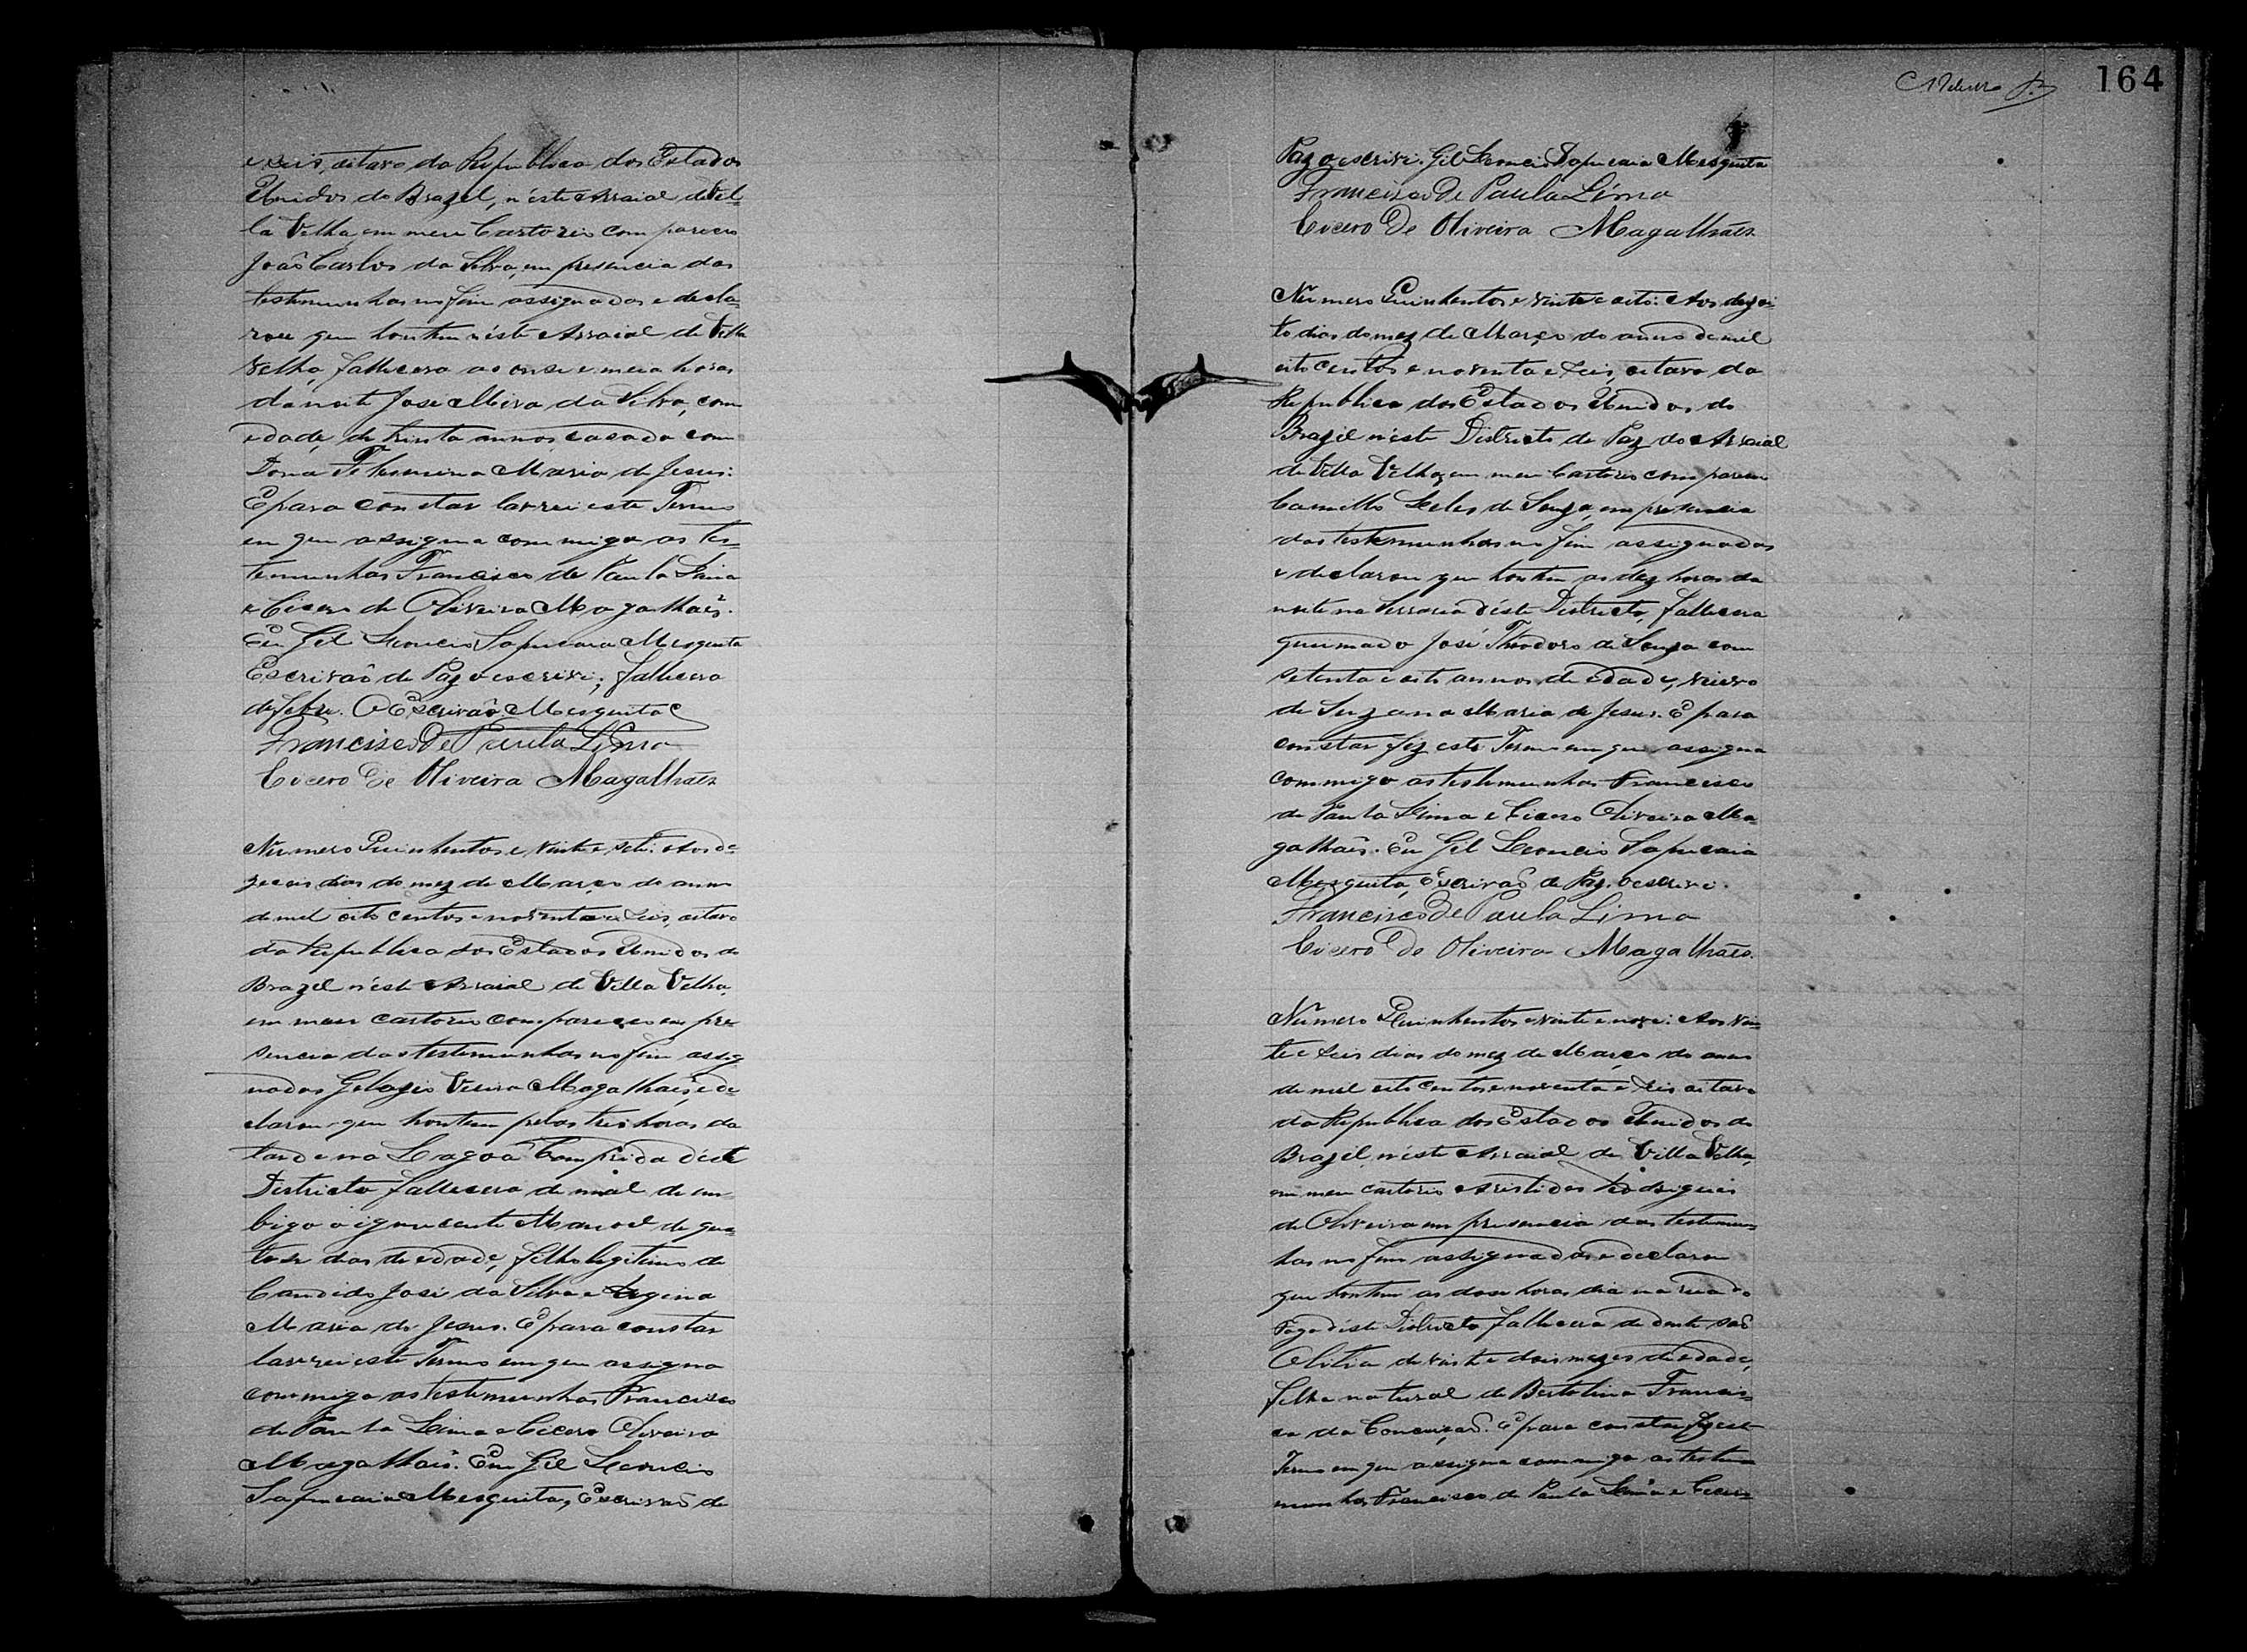 e seis, oitavo da Republica dos Estados
Unidos do Brazil, n'este Arraial de Vil-
la Velha em meu Cartorio compareceo
João Carlos da Silva, em presencia das
testemunhas no fim assignadas e decla-
rou que hontem n'este Arraial de Villa
Velha, fallecera as onze e meia horas
da noite Jose da Silva, com
edade de trinta annos, casado com
Dona Maria de Jesus:
E para constar lavrei este Termo
em que assigna commigo as tes-
temunhas Francisco de Paula Lima
e Cicero de Oliveira Magalhães.
Eu Gil Leoncio Sapucaia Mesquita
Escrivão de Paz o escrivi; fallecera
de febre. O Escrivão Mesquita
Francisco De Paula Lima
Cicero De Oliveira Magalhães
Numero Quinhentos e vinte e sete: Aos de-
zeceis dias do mez de Março do anno
de mil oito centos e noventa e seis, oitavo
da Republica dos Estados Unidos do
Brazil n'este Arraial de Villa Velha,
em meu cartorio compareceo em pre-
sencia das testemunhas no fim assig
nadas Gelazio Vieira Magalhães, e de-
clarou que hontem pelas tres horas da
tarde na Lagoa Comprida d'este
Districto fallecera de mal de um-
bigo o ignocente Manoel de qua-
torze dias de edade, filho legitimo de
Candido José da Silva e
Maria de Jesus. E para constar
lavrei este Termo em que assigna
commigo as testemunhas Francisco
de Paula Lima e Cicero Oliveira
Magalhães. Eu Gil Leoncio
Sapucaia Mesquita, Escrivão de
164
Paz o escrivi. Gil Leoncio Sapucaia Mesquita
Francisco De Paula Lima
Cicero De Oliveira Magalhães
Numero Quinhentos e vinte e oito: Aos dezoi-
to dias do mez de Março do anno de mil
oito centos e noventa e seis, oitavo da
Republica dos Estados Unidos do
Brazil n'este Districto de Paz do Arraial
de Villa Velha, em meu Cartorio compareceu
Camillo Leles de Souza, em presencia
das testemunhas no fim assignadas
e declarou que hontem as dez horas da
noite na Serraria d'este Districto, fallecera
queimado José Theodoro de Souza com
setenta e oito annos de edade, viuvo
de Suzana Maria de Jesus. E para
constar fiz este Termo em que assigna
commigo as testemunhas Francisco
de Paula Lima e Cicero Oliveira Ma-
galhães. Eu Gil Leoncio Sapucaia
Mesquita, Escrivão de Paz. o escrivi.
Francisco De Paula Lima
Cicero De Oliveira Magalhães.
Numero Quinhentos e vinte e nove: Aos vin-
te e seis dias do mez de Março do anno
de mil oito centos e noventa e seis oitavo
da Republica dos Estados Unidos do
Brazil, n'este Arraial de Villa Velha,
em meu cartorio Aristides Rodrigues
de Oliveira em presencia das testemun-
has no fim assignadas e declarou
que hontem as doze horas dia na rua do
Fogo d'este Districto fallecera de dente
de vinte e dois mezes de edade,
filha natural de Bertolina Francis-
ca da Conceição. E para constar fiz este
Termo em que assigna commigo as teste-
munhas Francisco de Paula Lima e Cicero